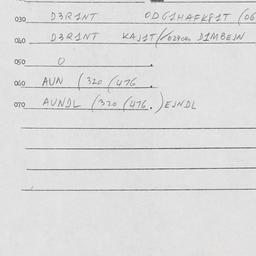 030 D3R1NT ODG1HAFKP1T (06
040 D3R1NT KAJ1T D1MBEJN
050 0 .
060 AUN (320 (476 .
070 AUNDL (320 (476.) EJNDL